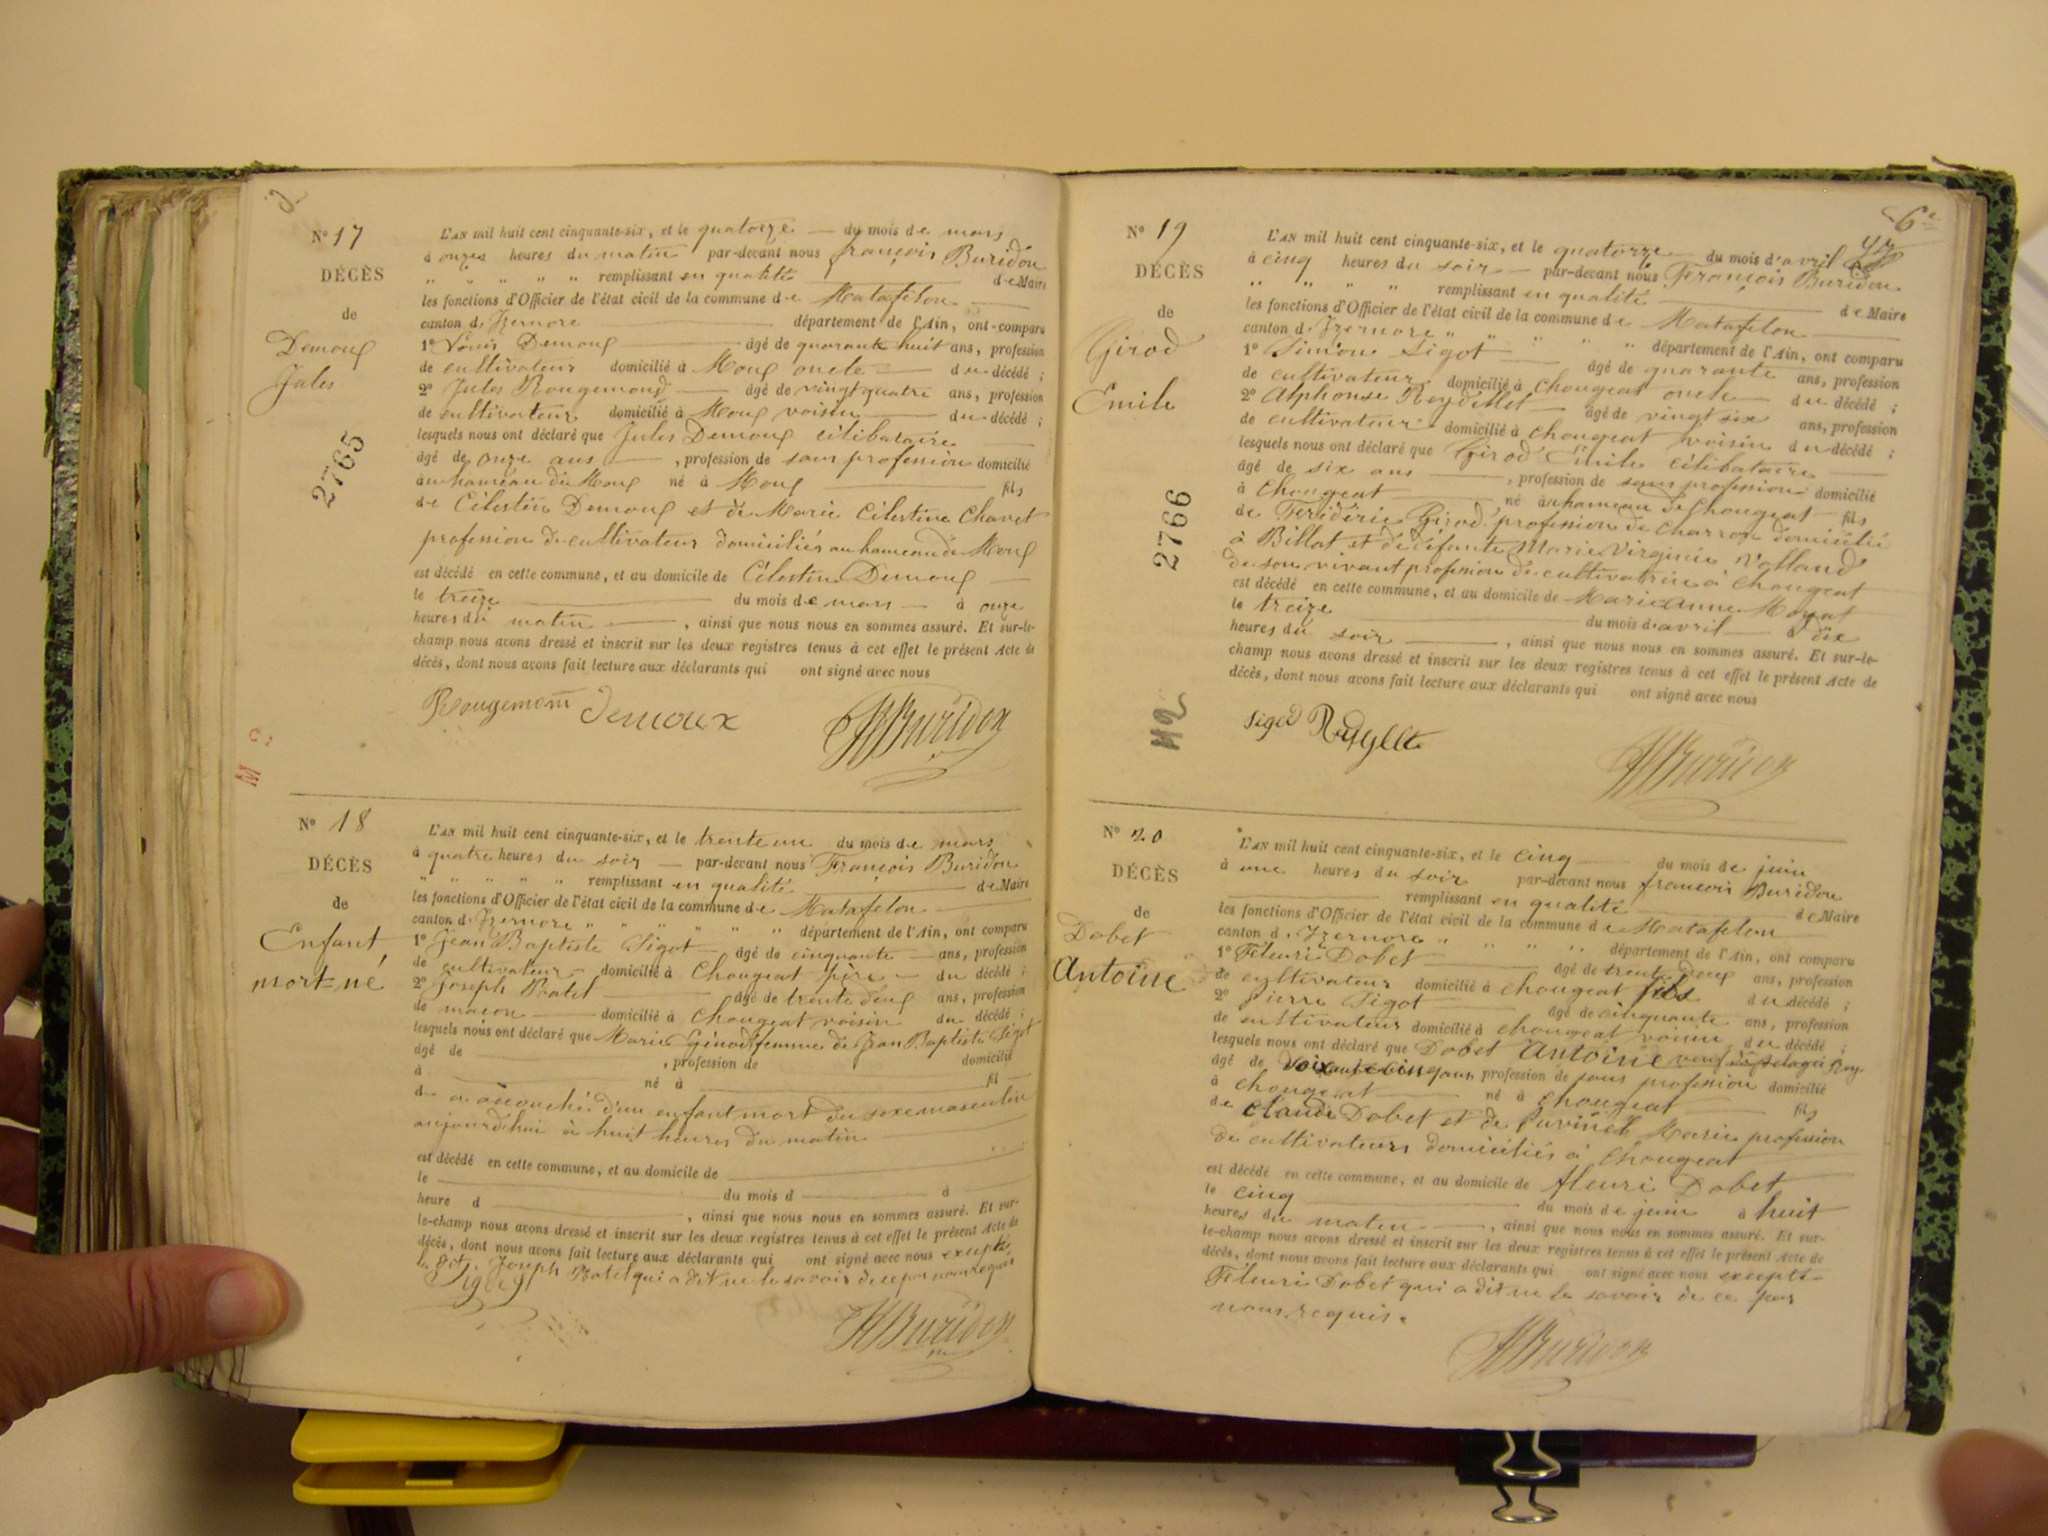 N° 17
DÉCÈS
de
Demoux
Jules
2765
L'AN mil huit cent cinquante-six, et le quatorze du mois de mars
à onze heures du matin par-devant nous françois Buridon
" " " " " remplissant en qualité de Maire
les fonctions d'Officier de l'état civil de la commune de Matafelon
canton d'Izernore département de l'Ain, ont comparu
1° Louis Demoux âgé de quarante huit ans, profession
de cultivateur domicilié à Moux oncle du décédé ;
2° Jules Rougemond âgé de vingt quatre ans, profession
de cultivateur domicilié à Moux voisin du décédé ;
lesquels nous ont déclaré que Jules Demoux célibataire
âgé de onze ans, profession de sans profession domicilié
au hameau du Moux né à Moux fils
de Célestin Demoux et de Marie Célestine Chavet
profession de cultivateur domiciliés au hameau de Moux
est décédé en cette commune, et au domicile de Célestin Demoux
le treize du mois de mars à onze
heures du matin, ainsi que nous nous en sommes assuré. Et sur-le-
champ nous avons dressé et inscrit sur les deux registres tenus à cet effet le présent Acte de
décès, dont nous avons fait lecture aux déclarants qui ont signé avec nous
Rougemont Demoux Buridon
N° 18
DÉCÈS
de
Enfant
mort-né
L'AN mil huit cent cinquante-six, et le trente un du mois de mars
à quatre heures du soir par-devant nous François Buridon
" " " " " remplissant en qualité de Maire
les fonctions d'Officier de l'état civil de la commune de Matafelon
canton d'Izernore " " " " " département de l'Ain, ont comparu
1° Jean Baptiste Sigot âgé de cinquante ans, profession
de cultivateur domicilié à Chougeat père du décédé ;
2° Joseph âgé de trente deux ans, profession
de maçon domicilié à Chougeat voisin du décédé ;
lesquels nous ont déclaré que Marie femme de Jean Baptiste Sigot
âgé de , profession de domicilié
à né à fil
de a accouché d'un enfant mort du sexe masculin
aujourdhui à huit heures du matin
est décédé en cette commune, et au domicile de
le du mois d à
heure d , ainsi que nous nous en sommes assuré. Et sur-
le-champ nous avons dressé et inscrit sur les deux registres tenus à cet effet le présent Acte de
décès, dont nous avons fait lecture aux déclarants qui ont signé avec nous excepté
Joseph qui a dit ne le savoir de ce par nous requis
Buridon
N° 19
DÉCÈS
de
Girod
Emile
2766
42
6e
L'AN mil huit cent cinquante-six, et le quatorze du mois d'avril
à cinq heures du soir par-devant nous François Buridon
" " " " remplissant en qualité de Maire
les fonctions d'Officier de l'état civil de la commune de Matafelon
canton d'Izernore " " " " département de l'Ain, ont comparu
1° Simon Sigot âgé de quarante ans, profession
de cultivateur domicilié à Chougeat oncle du décédé ;
2° Alphonse Reydellet âgé de vingt six ans, profession
de cultivateur domicilié à Chougeat voisin du décédé ;
lesquels nous ont déclaré que Girod Emile célibataire
âgé de six ans, profession de sans profession domicilié
à Chougeat né au hameau de Chougeat fils
de Fridéric Girod profession de Charron domicilié
à Billat et de défunte Marie Virginie Volland
de son vivant profession de cultivatrice à Chougeat
est décédé en cette commune, et au domicile de Marie Anne
le treize du mois d'avril à dix
heures du soir, ainsi que nous nous en sommes assuré. Et sur-le-
champ nous avons dressé et inscrit sur les deux registres tenus à cet effet le présent Acte de
décès, dont nous avons fait lecture aux déclarants qui ont signé avec nous
Buridon
N° 20
DÉCÈS
de
Dobet
Antoine
L'AN mil huit cent cinquante-six, et le cinq du mois de juin
à une heures du soir par-devant nous françois Buridon
remplissant en qualité de Maire
les fonctions d'Officier de l'état civil de la commune de Matafelon
canton d'Izernore " " " " département de l'Ain, ont comparu
1° Fleuri Dobet âgé de trente deux ans, profession
de cultivateur domicilié à Chougeat fils du décédé ;
2° Pierre Sigot âgé de cinquante ans, profession
de cultivateur domicilié à Chougeat voisin du décédé ;
lesquels nous ont déclaré que Dobet Antoine veuf de
âgé de ans, profession de sans profession domicilié
à Chougeat né à Chougeat fils
de Claude Dobet et de Marie profession
de cultivateurs domiciliés à Chougeat
est décédé en cette commune, et au domicile de fleuri Dobet
le cinq du mois de juin à huit
heures du matin, ainsi que nous nous en sommes assuré. Et sur-
le-champ nous avons dressé et inscrit sur les deux registres tenus à cet effet le présent Acte de
décès, dont nous avons fait lecture aux déclarants qui ont signé avec nous excepté
Fleuri Dobet qui a dit ne le savoir de ce par
nous requis.
Buridon